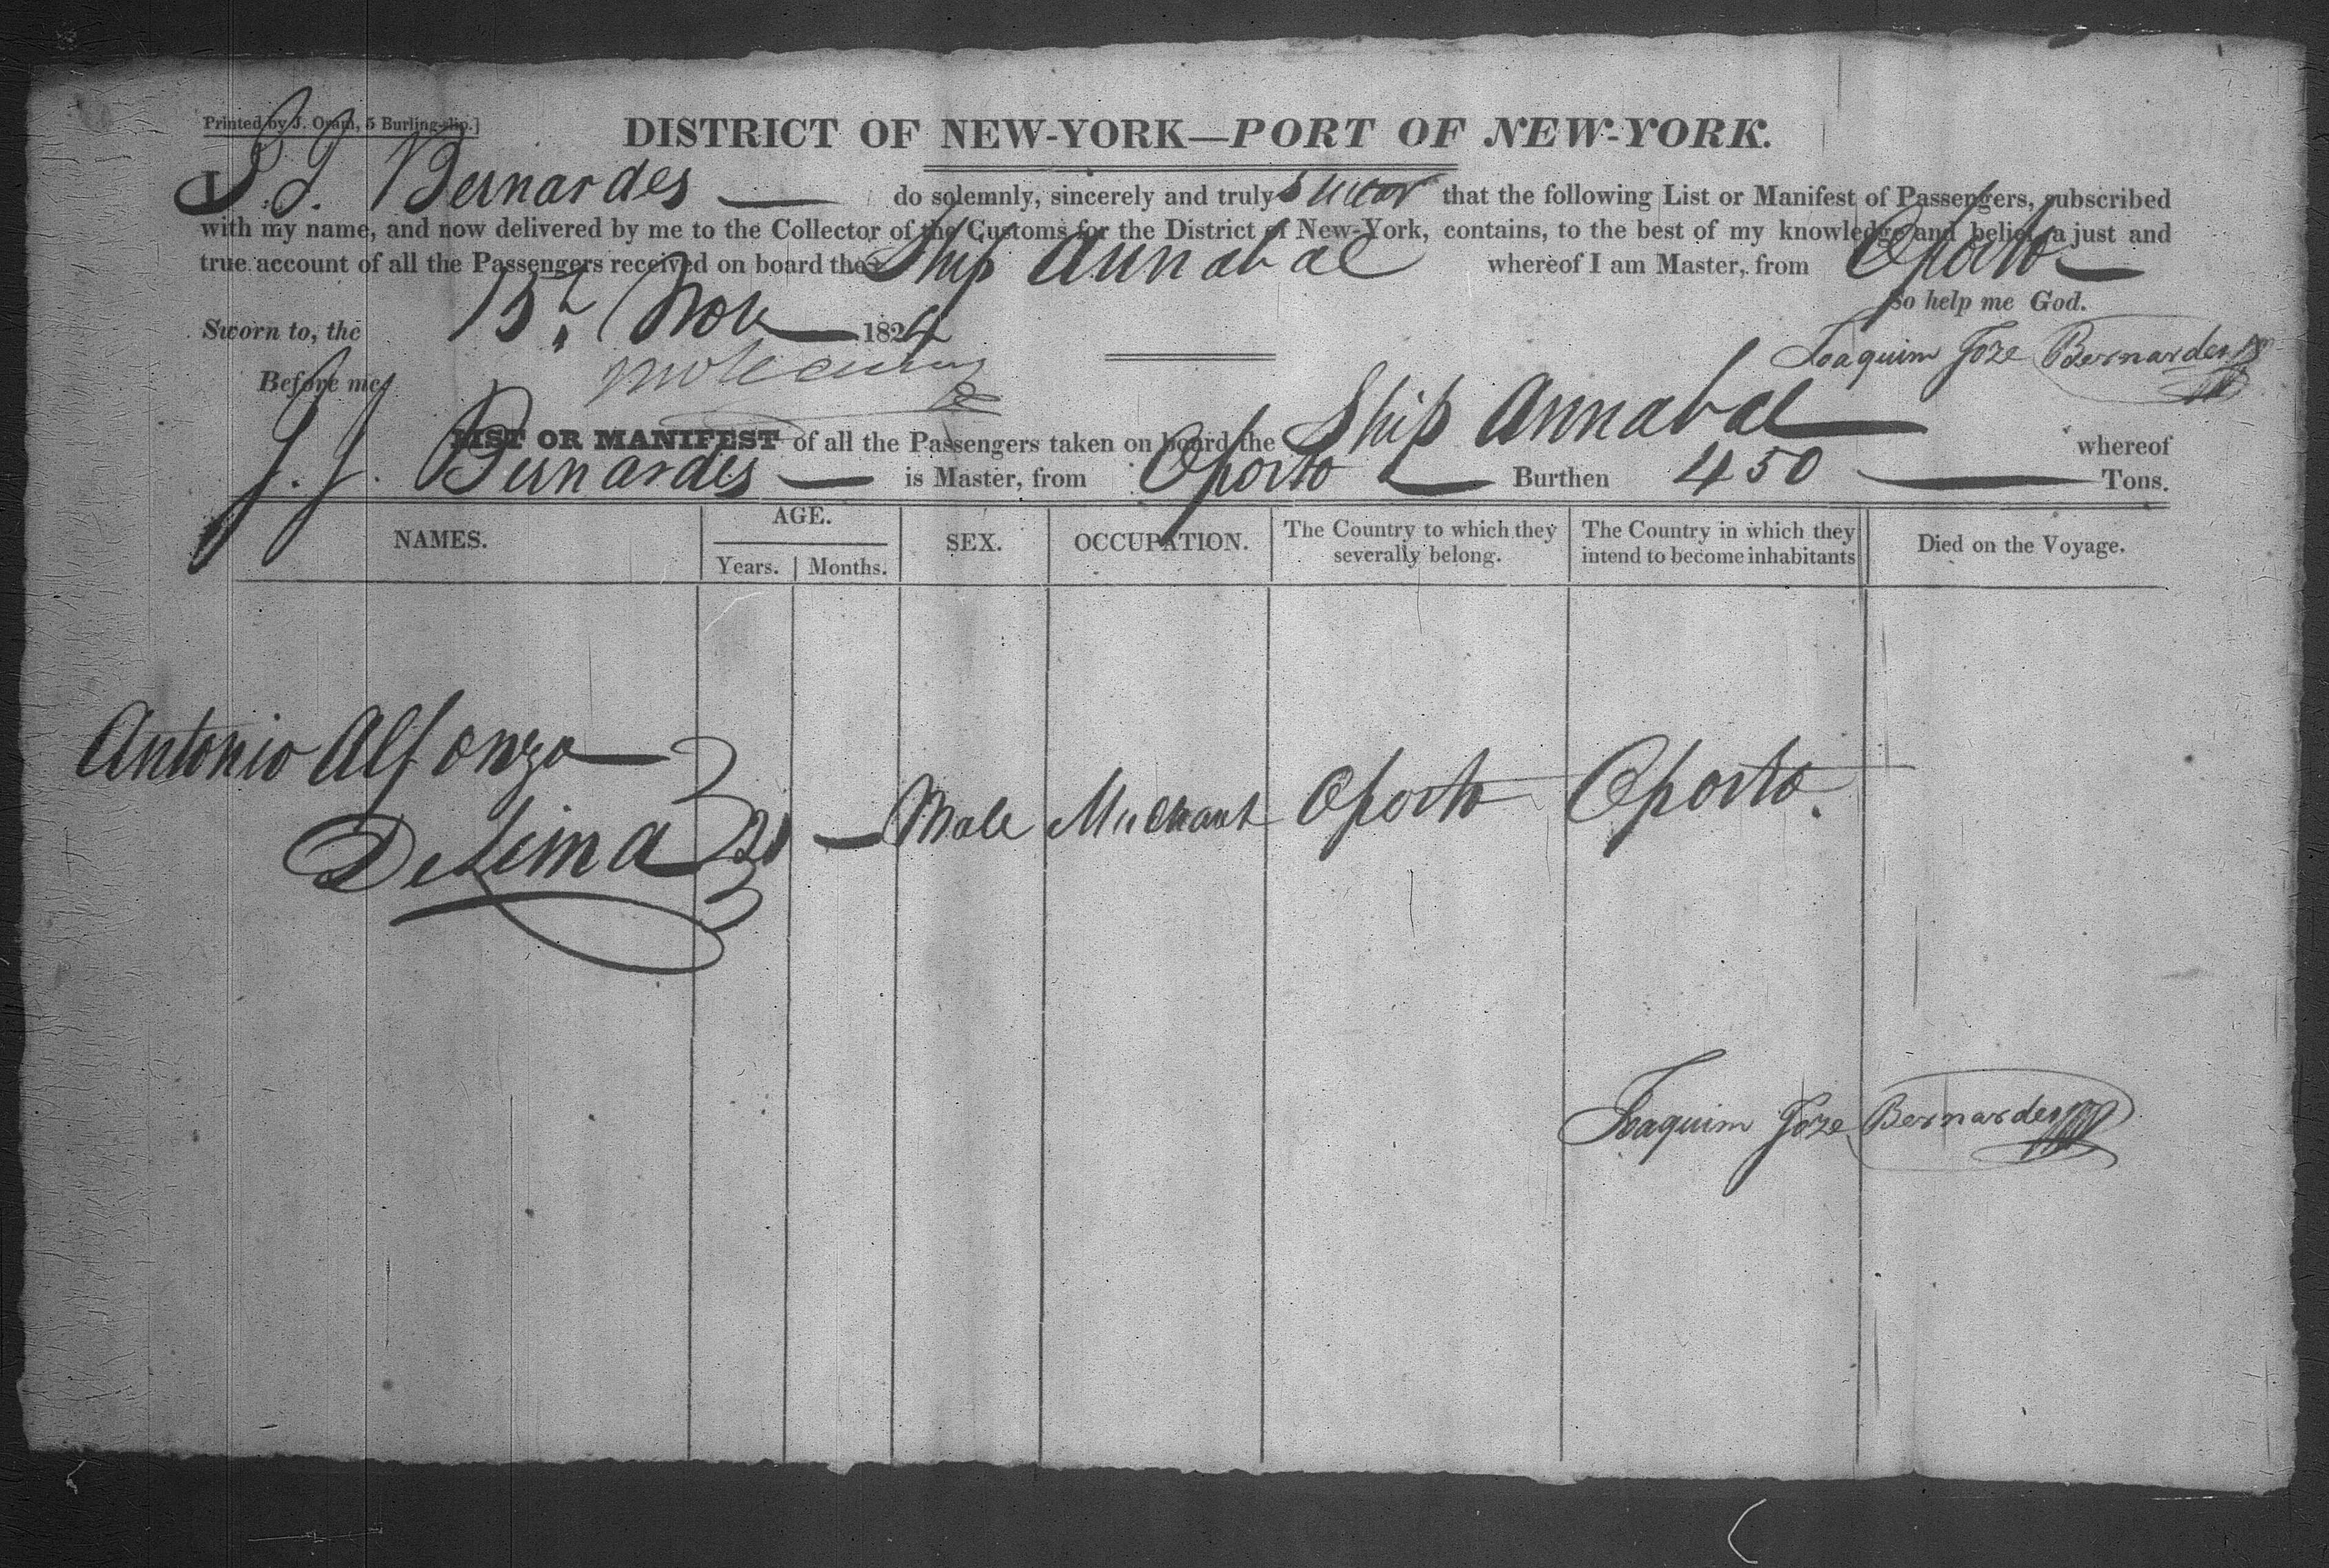 Printed by J. Oram, 5 Burling-slip.]
DISTRICT OF NEW-YORK—PORT OF NEW-YORK.
I J. J. Bernardes — do solemnly, sincerely and truly swear that the following List or Manifest of Passengers, subscribed
with my name, and now delivered by me to the Collector of the Customs for the District of New-York, contains, to the best of my knowledge and belief, a just and
true account of all the Passengers received on board the Ship Annabal whereof I am Master, from Oporto —
So help me God.
Sworn to, the 15th Nov — 1824
Joaquim Joze Bernardes
Before me,
LIST OR MANIFEST of all the Passengers taken on board the Ship Annabal — whereof
J. J. Bernardes — is Master, from Oporto — Burthen 450 — Tons.
NAMES. AGE. SEX. OCCUPATION. The Country to which they severally belong. The Country in which they intend to become inhabitants Died on the Voyage.
Years. Months.
Antonio Alfonzo —
De Lima — Male Merchant Oporto Oporto.
Joaquim Joze Bernardes